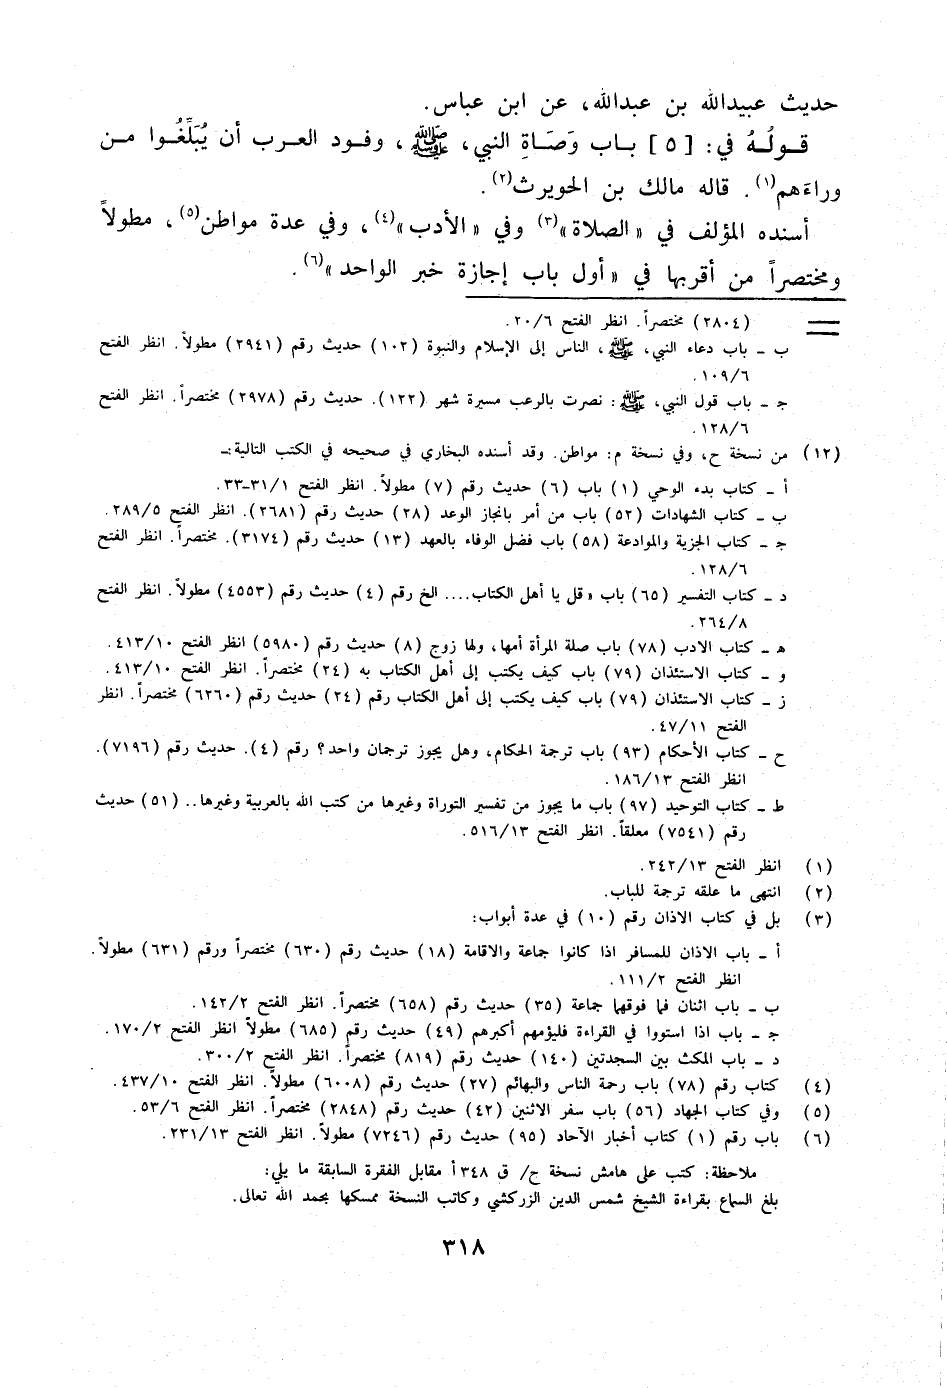 حديث عبيدالله بن عبدالله، عن ابن عباس.
قولُهُ في: [٥] باب وَصَاةِ النبي، ﷺ، وفود العرب أن يُبَلِّغُوا من
وراءَهم(١). قاله مالك بن الحويرث(٢).
أسنده المؤلف في «الصلاة»(٣) وفي «الأدب»(٤)، وفي عدة مواطن(٥)، مطولاً
ومختصراً من أقربها في «أول باب إجازة خبر الواحد»(٦).
= (٢٨٠٤) مختصراً. انظر الفتح ٢٠/٦.
ب ـ باب دعاء النبي، ﷺ، الناس إلى الإسلام والنبوة (١٠٢) حديث رقم (٢٩٤١) مطولاً. انظر الفتح
١٠٩/٦.
جـ ـ باب قول النبي، ﷺ: نصرت بالرعب مسيرة شهر (١٢٢). حديث رقم (٢٩٧٨) مختصراً. انظر الفتح
١٢٨/٦.
(١٢) من نسخة ح، وفي نسخة م: مواطن. وقد أسنده البخاري في صحيحه في الكتب التالية:ـ
أ ـ كتاب بدء الوحي (١) باب (٦) حديث رقم (٧) مطولاً. انظر الفتح ٣١/١-٣٣.
ب ـ كتاب الشهادات (٥٢) باب من أمر بانجاز الوعد (٢٨) حديث رقم (٢٦٨١). انظر الفتح ٢٨٩/٥.
جـ ـ كتاب الجزية والموادعة (٥٨) باب فضل الوفاء بالعهد (١٣) حديث رقم (٣١٧٤). مختصراً. انظر الفتح
١٢٨/٦.
د ـ كتاب التفسير (٦٥) باب «قل يا أهل الكتاب.... الخ رقم (٤) حديث رقم (٤٥٥٣) مطولاً. انظر الفتح
٢٦٤/٨.
هـ ـ كتاب الادب (٧٨) باب صلة المرأة أمها، ولها زوج (٨) حديث رقم (٥٩٨٠) انظر الفتح ٤١٣/١٠.
و ـ كتاب الاستئذان (٧٩) باب كيف يكتب إلى أهل الكتاب به (٢٤) مختصراً. انظر الفتح ٤١٣/١٠.
ز ـ كتاب الاستئذان (٧٩) باب كيف يكتب إلى أهل الكتاب رقم (٢٤) حديث رقم (٦٢٦٠) مختصراً. انظر
الفتح ٤٧/١١.
ح ـ كتاب الأحكام (٩٣) باب ترجمة الحكام، وهل يجوز ترجمان واحد؟ رقم (٤). حديث رقم (٧١٩٦).
انظر الفتح ١٨٦/١٣.
ط ـ كتاب التوحيد (٩٧) باب ما يجوز من تفسير التوراة وغيرها من كتب الله بالعربية وغيرها.. (٥١) حديث
رقم (٧٥٤١) معلقاً. انظر الفتح ٥١٦/١٣.
(١) انظر الفتح ٢٤٢/١٣.
(٢) انتهى ما علقه ترجمة للباب.
(٣) بل في كتاب الاذان رقم (١٠) في عدة أبواب:
أ ـ باب الاذان للمسافر اذا كانوا جماعة والاقامة (١٨) حديث رقم (٦٣٠) مختصراً ورقم (٦٣١) مطولاً.
انظر الفتح ١١١/٢.
ب ـ باب اثنان فما فوقهما جماعة (٣٥) حديث رقم (٦٥٨) مختصراً. انظر الفتح ١٤٢/٢.
جـ ـ باب اذا استووا في القراءة فليؤمهم أكبرهم (٤٩) حديث رقم (٦٨٥) مطولاً انظر الفتح ١٧٠/٢.
د ـ باب المكث بين السجدتين (١٤٠) حديث رقم (٨١٩) مختصراً. انظر الفتح ٣٠٠/٢.
(٤) كتاب رقم (٧٨) باب رحمة الناس والبهائم (٢٧) حديث رقم (٦٠٠٨) مطولاً. انظر الفتح ٤٣٧/١٠.
(٥) وفي كتاب الجهاد (٥٦) باب سفر الاثنين (٤٢) حديث رقم (٢٨٤٨) مختصراً. انظر الفتح ٥٣/٦.
(٦) باب رقم (١) كتاب أخبار الآحاد (٩٥) حديث رقم (٧٢٤٦) مطولاً. انظر الفتح ٢٣١/١٣.
ملاحظة: كتب على هامش نسخة ح/ ق ٣٤٨ أ مقابل الفقرة السابقة ما يلي:
بلغ السماع بقراءة الشيخ شمس الدين الزركشي وكاتب النسخة ممسكها بحمد الله تعالى.
٣١٨